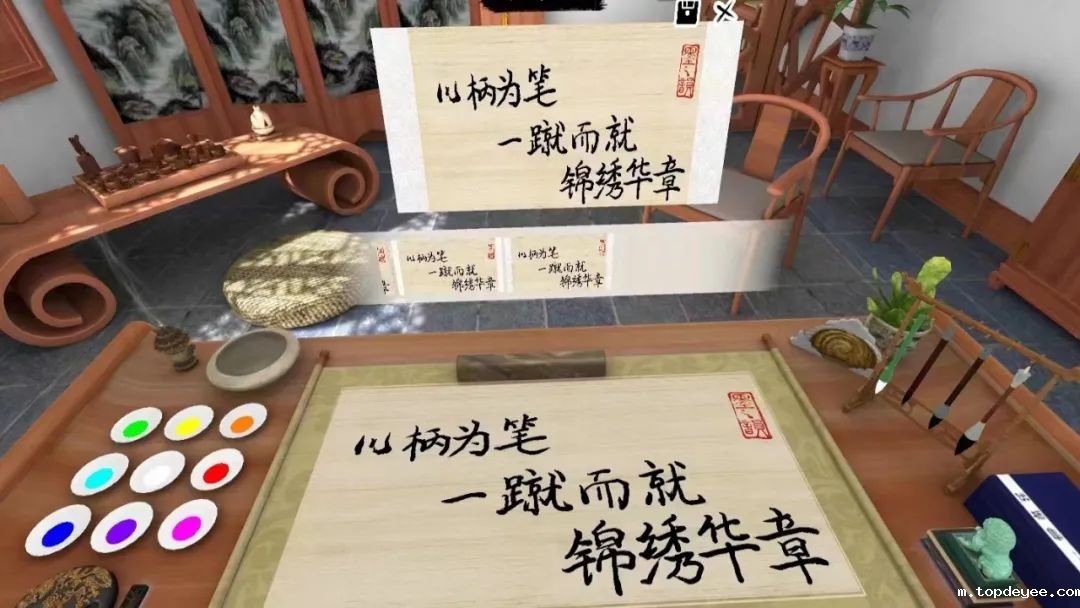 以柄为笔
一蹴而就
锦绣华章
墨之韻
以柄为笔
一蹴而就
锦绣华章
以柄为笔
一蹴而就
锦绣华章
以柄为笔
一蹴而就
锦绣华章
墨之韻
m.topdeyee.com